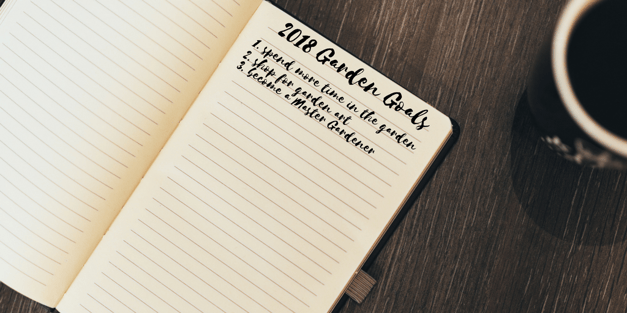 2018 Garden Goals
1. spend more time in the garden
2. shop for garden art
3. become a Master Gardener